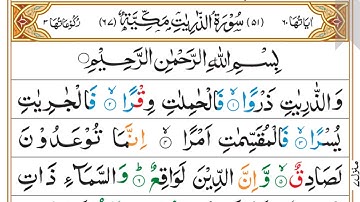 اٰیاتها ٦٠ (٥١) سُوْرَةُ الذّٰرِیٰتِ مَكِّیَّةٌ (٦٧) رُكُوْعَاتُها ٣
بِسْمِ اللهِ الرَّحْمٰنِ الرَّحِیْمِ
وَالذّٰرِیٰتِ ذَرْوًا ۙ﴿١﴾ فَالْحٰمِلٰتِ وِقْرًا ۙ﴿٢﴾ فَالْجٰرِیٰتِ
یُسْرًا ۙ﴿٣﴾ فَالْمُقَسِّمٰتِ اَمْرًا ۙ﴿٤﴾ اِنَّمَا تُوْعَدُوْنَ
لَصَادِقٌ ۙ﴿٥﴾ وَّاِنَّ الدِّیْنَ لَوَاقِعٌ ؕ﴿٦﴾ وَالسَّمَآءِ ذَاتِ